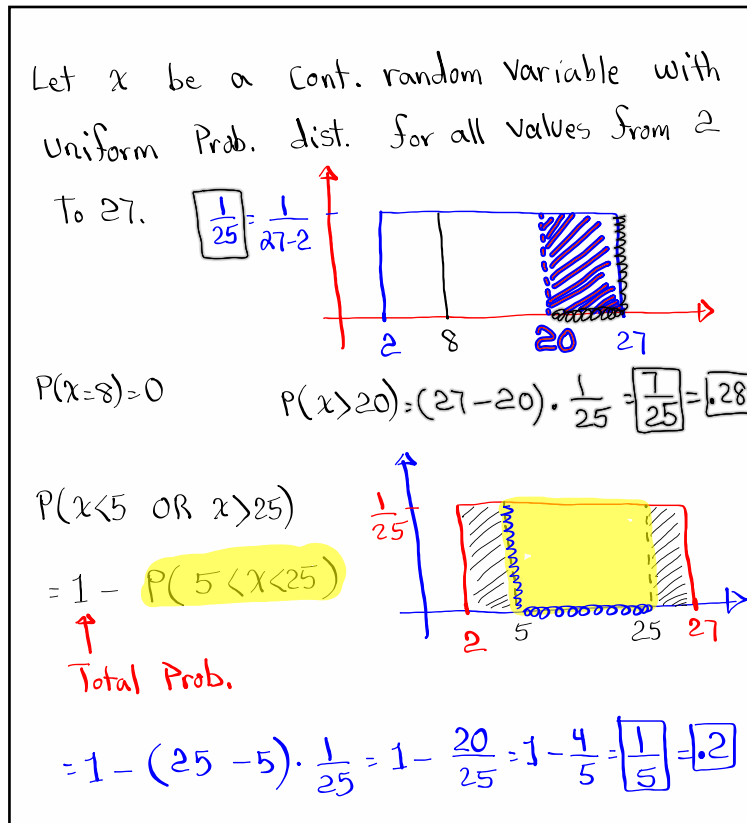 Let x be a Cont. random variable with
Uniform Prob. dist. for all values from 2
To 27. 1/25 = 1/(27-2)
2 8 20 27
P(x=8)=0 P(x>20)=(27-20)·1/25=7/25=.28
P(x<5 OR x>25)
1/25
= 1 - P(5<x<25)
2 5 25 27
Total Prob.
=1-(25-5)·1/25=1-20/25=1-4/5=1/5=.2